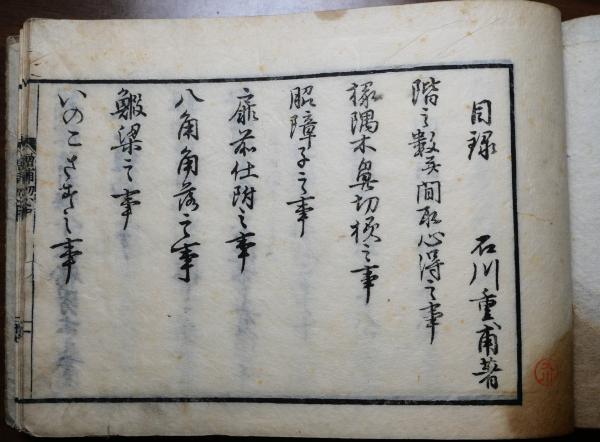 目録　石川重甫著
階之数并間取心得之事
椽隅木鼻切様之事
障子之事
扉 仕附之事
八角角落之事
鰕梁之事
いのこさす之事